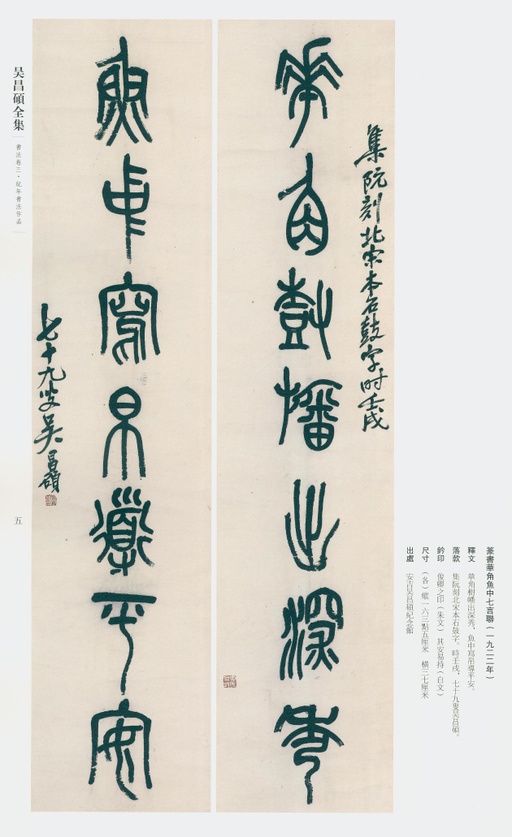 篆書華角魚中七言聯(一九二二年)
釋文 華角樹幡出深秀,魚中寫帛導平安。
落款 集阮刻北宋本石鼓字。時壬戌,七十九叟吳昌碩。
鈐印 俊卿之印(朱文) 其安易持(白文)
尺寸 (各)縱一六三點五厘米 橫三七厘米
出處 安吉吳昌碩紀念館
集阮刻北宋本石鼓字时壬戌
華角樹幡出深秀
魚中寫帛導平安
七十九叟吴昌碩
吴昌碩全集
書法卷三·紀年書法作品
五